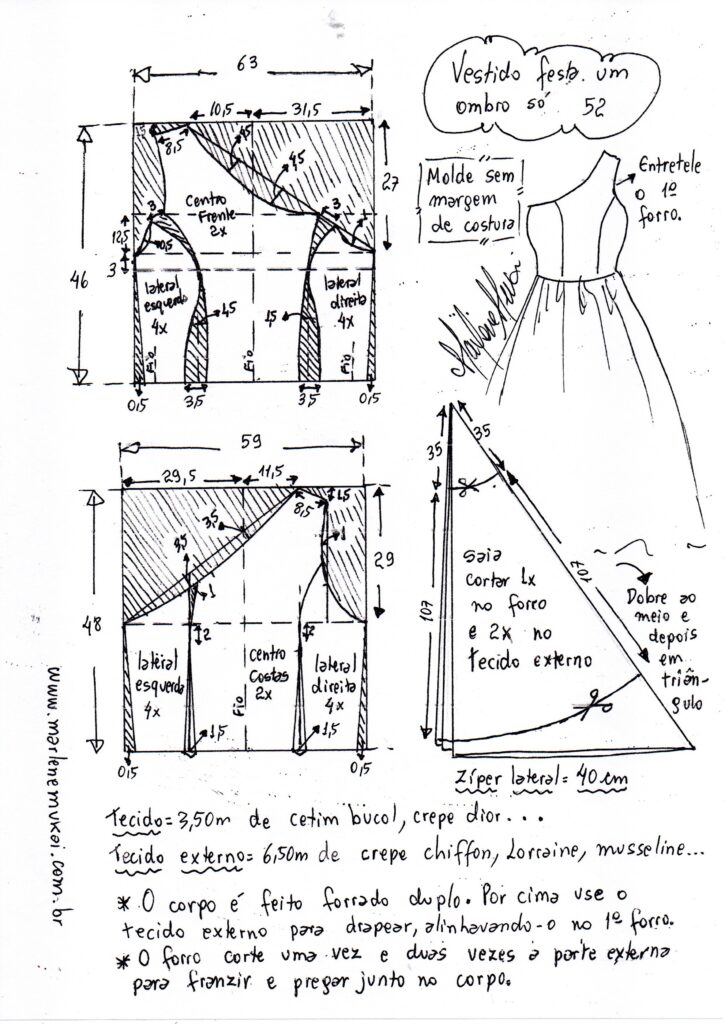 63
10,5
31,5
1,5
8,5
4,5
4,5
27
3
3
1
12,5
0,5
3
46
Centro
Frente
2x
lateral
esquerdo
4x
lateral
direita
4x
1,5
1,5
Fio
Fio
Fio
0,5
3,5
3,5
0,5
Vestido festa um
ombro só 52
Molde sem
margem
de costura
Entretele
o 1º
forro.
59
29,5
11,5
1,5
8,5
3,5
1
1
29
48
2
2
lateral
esquerdo
4x
Centro
Costas
2x
lateral
direita
4x
Fio
1,5
1,5
0,5
0,5
35
35
107
107
saia
cortar 1x
no forro
e 2x no
tecido externo
Dobre ao
meio e
depois
em
triân-
gulo
Zíper lateral = 40 cm
www.marlenemukai.com.br
Tecido = 3,50m de cetim bucol, crepe dior...
Tecido externo = 6,50m de crepe chiffon, Lorraine, musseline...
* O corpo é feito forrado duplo. Por cima use o
tecido externo para drapear, alinhavando-o no 1º forro.
* O forro corte uma vez e duas vezes a parte externa
para franzir e pregar junto no corpo.